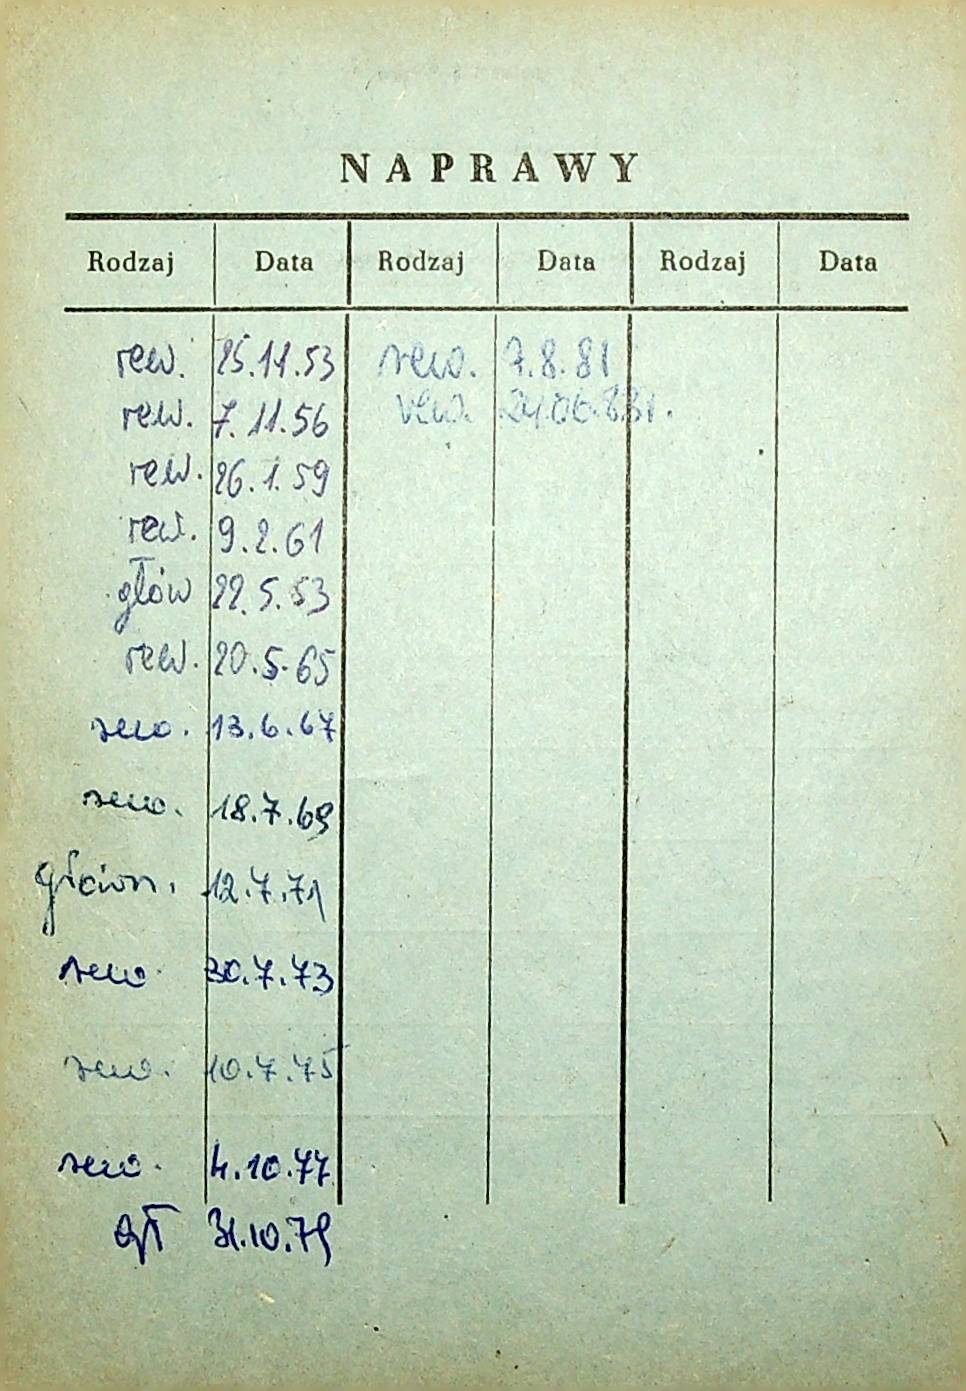 NAPRAWY
Rodzaj Data Rodzaj Data Rodzaj Data
rew. 25.11.53 rew. 7.8.81
rew. 7.11.56 rew.
rew. 26.1.59
rew. 9.2.61
głów 22.5.53
rew. 20.5.65
rew. 13.6.67
rew. 18.7.69
główn. 12.7.71
rew. 30.7.73
rew. 10.7.75
rew. 4.10.77
gł 31.10.79